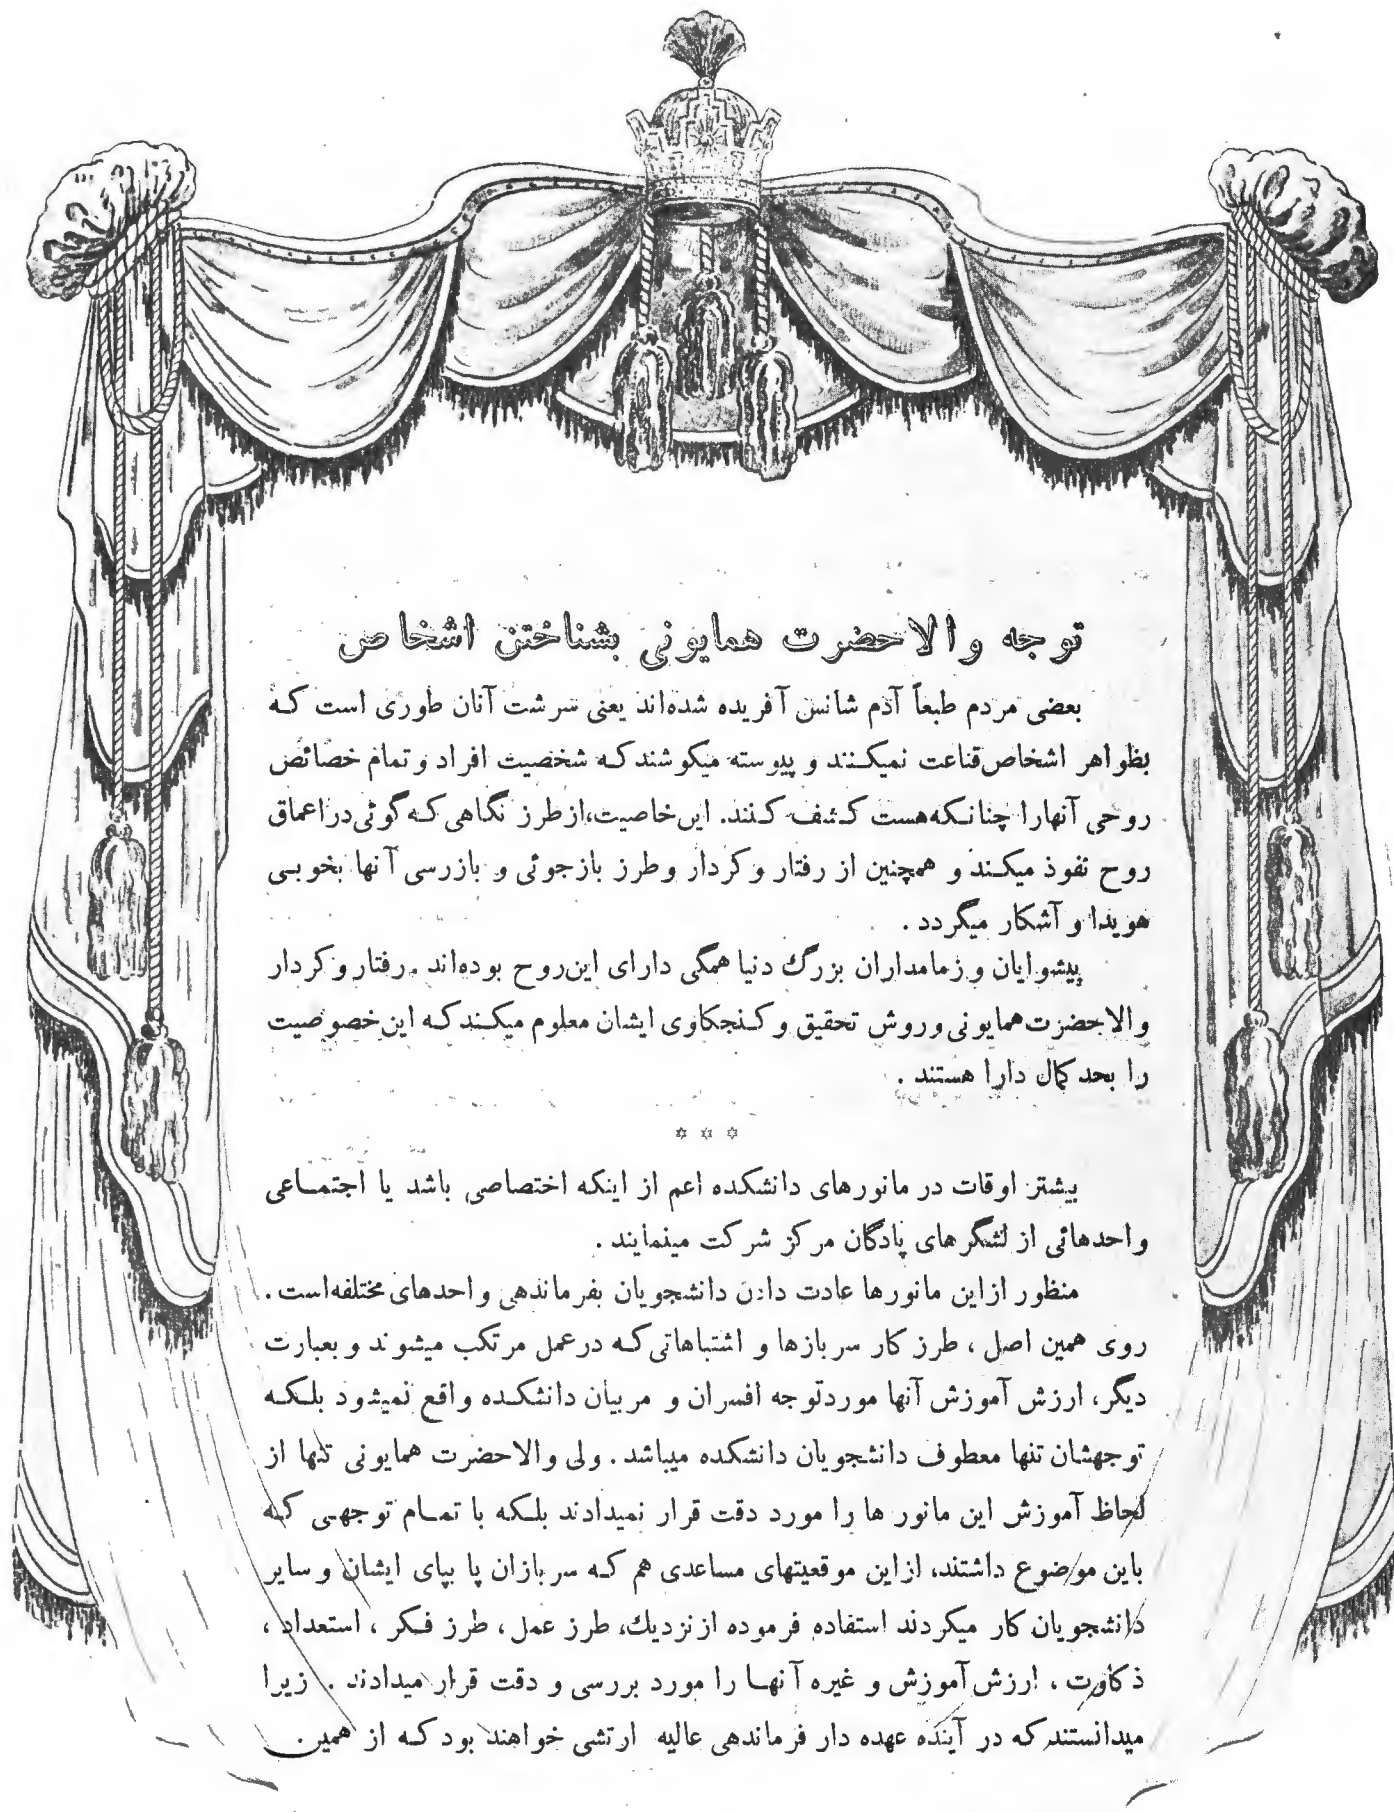 توجه والاحضرت همایونی بشناختن اشخاص
بعضی مردم طبعاً آدم شناس آفریده شده‌اند یعنی سرشت آنان طوری است که
بظواهر اشخاص قناعت نمیکنند و پیوسته میکوشند که شخصیت افراد و تمام خصائص
روحی آنهارا چنانکه هست کشف کنند. این خاصیت، از طرز نگاهی که گوئی در اعماق
روح نفوذ میکند و همچنین از رفتار و کردار و طرز بازجوئی و بازرسی آنها بخوبی
هویدا و آشکار میگردد .
پیشوایان و زمامداران بزرگ دنیا همگی دارای این روح بوده‌اند . رفتار و کردار
والاحضرت همایونی و روش تحقیق و کنجکاوی ایشان معلوم میکند که این خصوصیت
را بحد کمال دارا هستند .
✡ ✡ ✡
بیشتر اوقات در مانورهای دانشکده اعم از اینکه اختصاصی باشد یا اجتماعی
واحدهائی از لشگرهای پادگان مرکز شرکت مینمایند .
منظور از این مانورها عادت دادن دانشجویان بفرماندهی واحدهای مختلفه است .
روی همین اصل ، طرز کار سربازها و اشتباهاتی که در عمل مرتکب میشوند و بعبارت
دیگر، ارزش آموزش آنها مورد توجه افسران و مربیان دانشکده واقع نمیشود بلکه
توجهشان تنها معطوف دانشجویان دانشکده میباشد . ولی والاحضرت همایونی تنها از
لحاظ آموزش این مانور ها را مورد دقت قرار نمیدادند بلکه با تمام توجهی که
باین موضوع داشتند، از این موقعیتهای مساعدی هم که سربازان پا بپای ایشان و سایر
دانشجویان کار میکردند استفاده فرموده از نزدیک، طرز عمل ، طرز فکر ، استعداد ،
ذکاوت ، ارزش آموزش و غیره آنها را مورد بررسی و دقت قرار میدادند . زیرا
میدانستند که در آینده عهده دار فرماندهی عالیه ارتشی خواهند بود که از همین